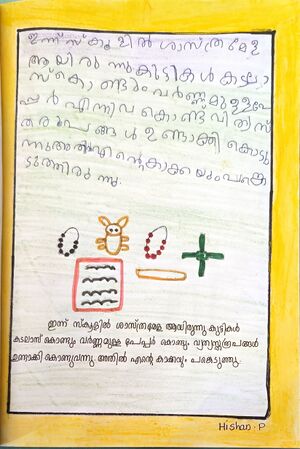 ഇന്ന് സ്കൂളിൽ ശാസ്ത്രമേള
ആയിരുന്നു കുട്ടികൾ കടലാ
സ് കൊണ്ടും വർണ്ണമുള്ള പേ
പ്പർ എന്നിവ കൊണ്ട് വിത്യസ്
ത രൂപങ്ങൾ ഉണ്ടാക്കി കൊടു
ന്നു അതിൽ എന്റെ കാക്കയും പങ്കെ
ടുത്തിരുന്നു.
ഇന്ന് സ്കൂളിൽ ശാസ്ത്രമേള ആയിരുന്നു കുട്ടികൾ
കടലാസ് കൊണ്ടും വർണ്ണമുള്ള പേപ്പർ കൊണ്ടും വ്യത്യസ്തരൂപങ്ങൾ
ഉണ്ടാക്കി കൊണ്ടുവന്നു. അതിൽ എന്റെ കാക്കയും പങ്കെടുത്തു.
Hishan. P